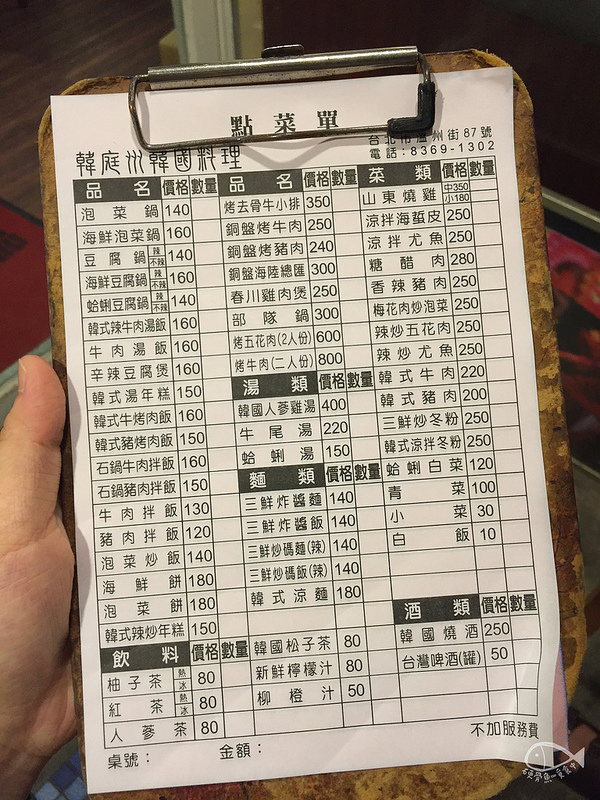 點菜單
韓庭州韓國料理
台北市溫州街87號
電話:8369-1302
品名 價格 數量
泡菜鍋 140
海鮮泡菜鍋 160
豆腐鍋 辣 不辣 140
海鮮豆腐鍋 辣 不辣 160
蛤蜊豆腐鍋 辣 不辣 140
韓式辣牛肉湯飯 160
牛肉湯飯 160
辛辣豆腐煲 160
韓式湯年糕 150
韓式牛烤肉飯 160
韓式豬烤肉飯 150
石鍋牛肉拌飯 160
石鍋豬肉拌飯 150
牛肉拌飯 130
豬肉拌飯 120
泡菜炒飯 140
海鮮餅 180
泡菜餅 180
韓式辣炒年糕 150
飲料 價格 數量
柚子茶 熱 冰 80
紅茶 熱 冰 80
人蔘茶 80
品名 價格 數量
烤去骨牛小排 350
銅盤烤牛肉 250
銅盤烤豬肉 240
銅盤海陸總匯 300
春川雞肉煲 250
部隊鍋 300
烤五花肉(2人份) 600
烤牛肉(二人份) 800
湯類 價格 數量
韓國人蔘雞湯 400
牛尾湯 220
蛤蜊湯 150
麵類 價格 數量
三鮮炸醬麵 140
三鮮炸醬飯 140
三鮮炒碼麵(辣) 140
三鮮炒碼飯(辣) 140
韓式涼麵 180
韓國松子茶 80
新鮮檸檬汁 80
柳橙汁 50
菜類 價格 數量
山東燒雞 中350 小180
涼拌海蜇皮 250
涼拌尤魚 250
糖醋肉 280
香辣豬肉 250
梅花肉炒泡菜 250
辣炒五花肉 250
辣炒尤魚 250
韓式牛肉 220
韓式豬肉 200
三鮮炒冬粉 250
韓式涼拌冬粉 250
蛤蜊白菜 120
青菜 100
小菜 30
白飯 10
酒類 價格 數量
韓國燒酒 250
台灣啤酒(罐) 50
不加服務費
桌號： 金額：